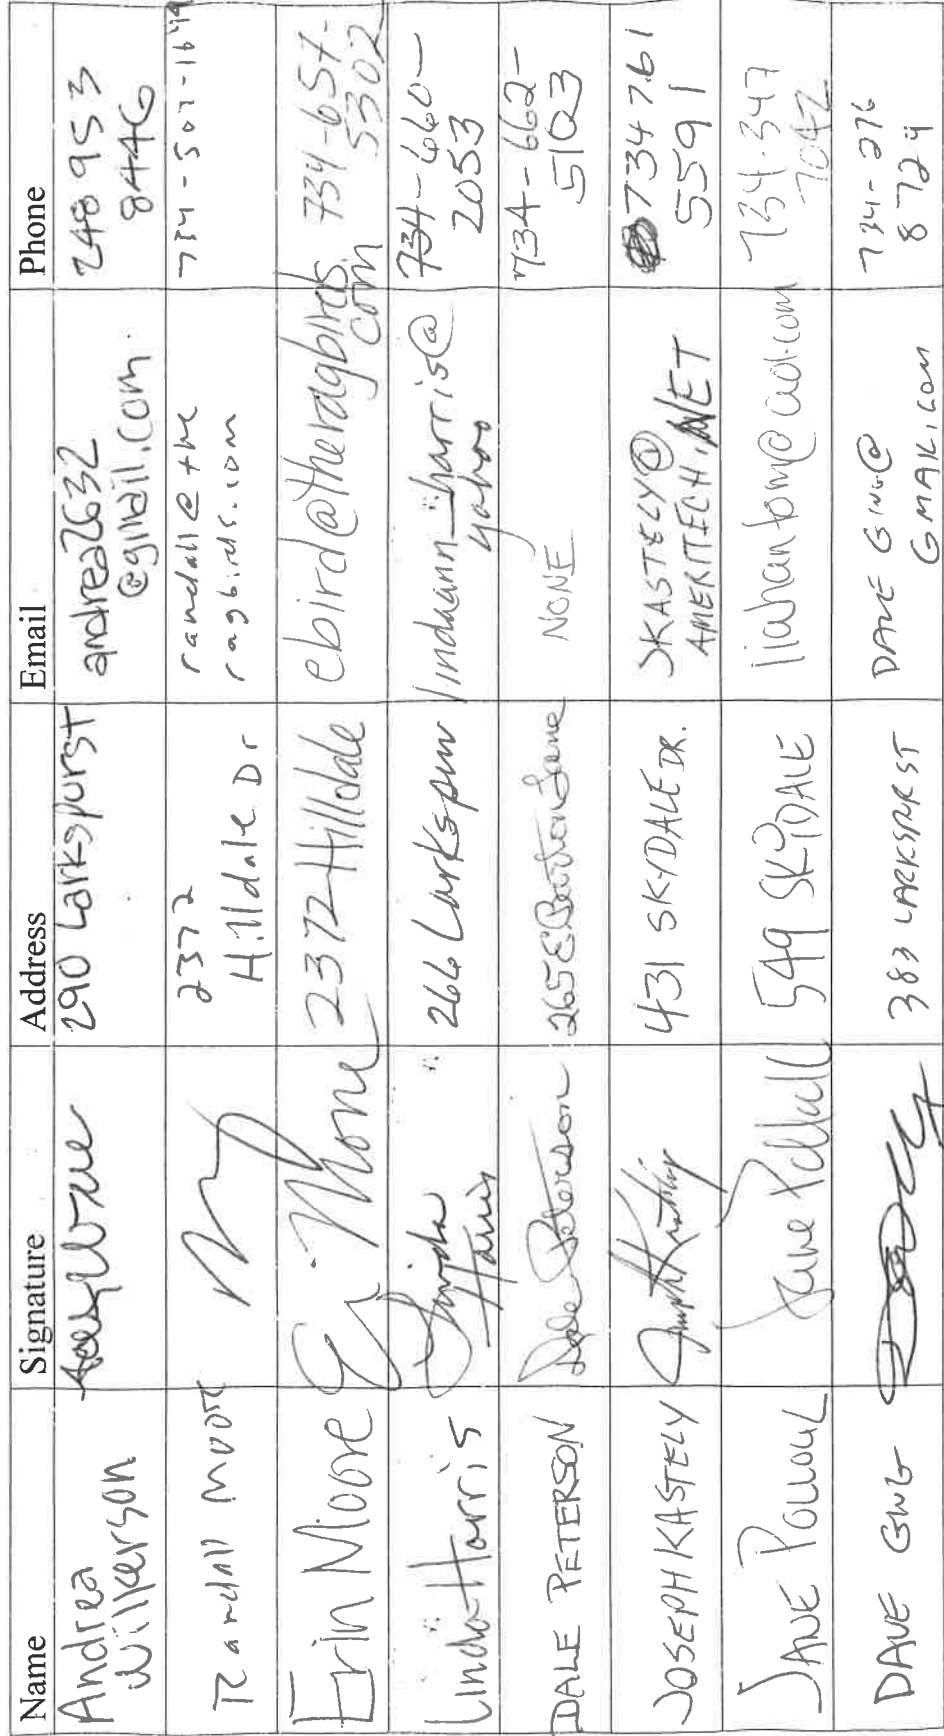 Name Signature Address Email Phone
Andrea Wilkerson 290 Larkspur St andrea2632 @gmail.com 248 953 8446
Randall Moore 2372 Hilldale Dr randall@the ragbirds.com 734-507-1649
Erin Moore E. Moore 2372 Hilldale ebird@theragbirds.com 734-657-5302
Linda Harris Linda Harris 266 Larkspur lindaann_harris@ yahoo 734-660-2053
DALE PETERSON Dale Peterson 265 E Barton Lane NONE 734-662-5103
JOSEPH KASTELY 431 SKYDALE DR. JKASTELY@ AMERITECH.NET 734 761 5591
JANE 549 SKYDALE 734-347 7042
DAVE 383 LARKSPR ST GMAIL.COM 734-276 8724